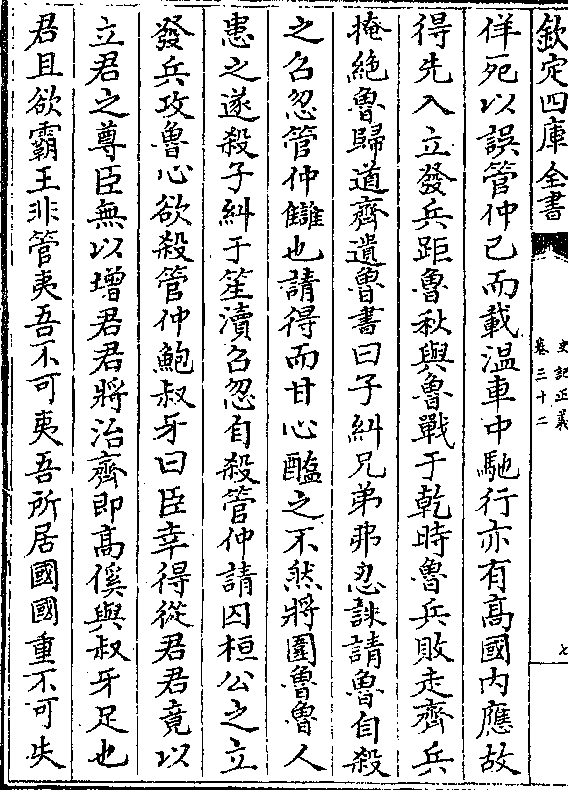 欽定四庫全書
史記正義
卷三十二
七
佯死以誤管仲已而載温車中馳行亦有髙國内應故
得先入立發兵距魯秋與魯戰于乾時魯兵敗走齊兵
掩絶魯歸道齊遺魯書曰子糾兄弟弗忍誅請魯自殺
之召忽管仲讎也請得而甘心醢之不然將圍魯魯人
患之遂殺子糾于笙瀆召忽自殺管仲請囚桓公之立
發兵攻魯心欲殺管仲鮑叔牙曰臣幸得從君君竟以
立君之尊臣無以增君君將治齊即髙傒與叔牙足也
君且欲霸王非管夷吾不可夷吾所居國國重不可失